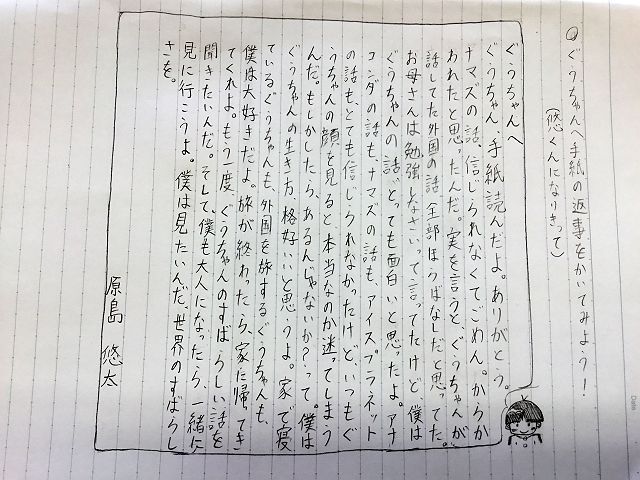 Qぐうちゃんへ手紙の返事をかいてみよう!
(悠くんになりきって)
ぐうちゃんへ
ぐうちゃん、手紙読んだよ。ありがとう。
ナマズの話、信じられなくてごめん。からか
われたと思ったんだ。実を言うと、ぐうちゃんが
話してた外国の話、全部ほらばなしだと思ってた。
お母さんは勉強しなさいって言ってたけど、僕は
ぐうちゃんの話、とっても面白いと思ったよ。アナ
コンダの話も、ナマズの話も、アイスプラネット
の話も、とても信じられなかったけど、いつもぐ
うちゃんの顔を見ると、本当なのか迷ってしまう
んだ。もしかしたら、あるんじゃないか?って。僕は
ぐうちゃんの生き方、格好いいと思うよ。家で寝
ているぐうちゃんも、外国を旅するぐうちゃんも、
僕は大好きだよ。旅が終わったら、家に帰ってき
てくれよ。もう一度、ぐうちゃんのすばらしい話を
聞きたいんだ。そして、僕も大人になったら、一緒に
見に行こうよ。僕は見たいんだ、世界のすばらし
さを。
原島 悠太